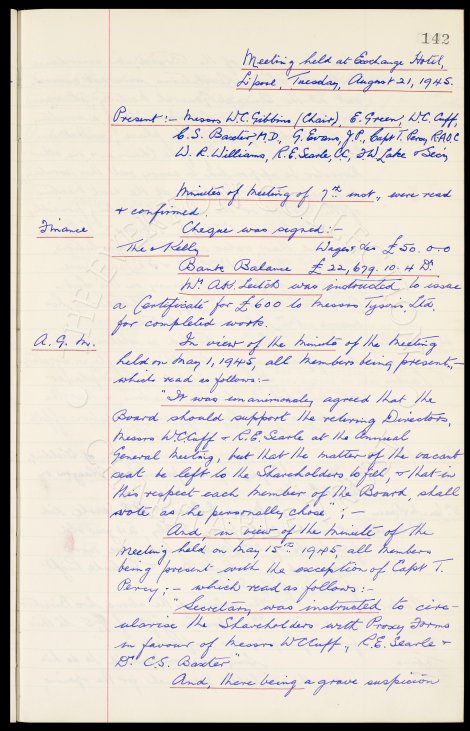 142
Meeting held at Exchange Hotel,
L'pool, Tuesday, August 21, 1945.
Present:- Messrs W.C. Gibbins (Chair), E. Green, W.C. Cuff,
C.S. Baxter, M.D., G. Evans, J.P., Capt T. Percy, R.A.O.C
W.R. Williams, R.E. Searle, C.C., J.W. Lake & Sec'y
Minutes of Meeting of 7th inst., were read
& confirmed.
Finance
Cheque was signed:-
The. Kelly Wages &cs £50.0.0
Bank Balance £22,679.10.4 Dr
Mr. A.H. Leitch was instructed to issue
a Certificate for £600 to Messrs Tysons, Ltd.
for completed work.
A.G.M.
In view of the Minute of the Meeting
held on May 1, 1945, all members being present,-
which read as follows:-
"It was unanimously agreed that the
Board should support the retiring Directors,
Messrs W.C. Cuff & R.E. Searle at the Annual
General Meeting, but that the matter of the vacant
seat be left to the Shareholders to fill, & that in
this respect each member of the Board, shall
vote as he personally chose"; -
And, in view of the Minute of the
Meeting held on May 15th 1945, all members
being present with the exception of Capt T.
Percy:- which read as follows:-
"Secretary was instructed to circu-
larise the Shareholders with Proxy Forms
in favour of Messrs W.C. Cuff, R.E. Searle &
Dr. C.S. Baxter"
And, there being a grave suspicion